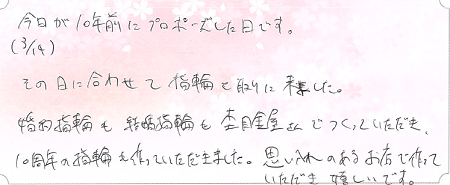 今日が10年前にプロポーズした日です。
(3/14)
その日に合わせて指輪を取りに来ました。
婚約指輪も結婚指輪も杢目金屋さんでつくっていただき、
10周年の指輪も作っていただきました。思い入れのあるお店で作って
いただき嬉しいです。